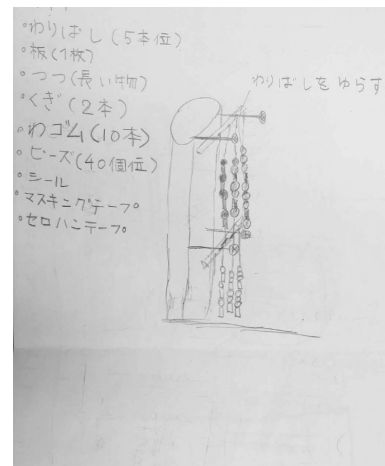 ・わりばし(5本位)
・板(1枚)
・つつ(長い物)
・くぎ(2本)
・わゴム(10本)
・ビーズ(40個位)
・シール
・マスキングテープ
・セロハンテープ
わりばしをゆらす